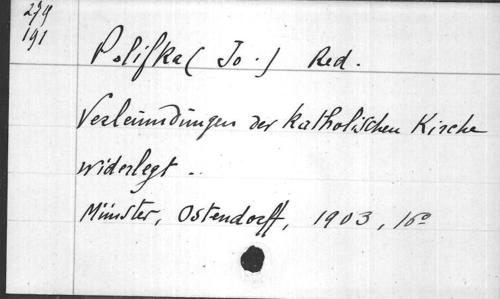 279
191
Polifka (Jo.) Red.
Verleumdungen der katholischen Kirche
widerlegt..
Münster, Ostendorff, 1903, 16°